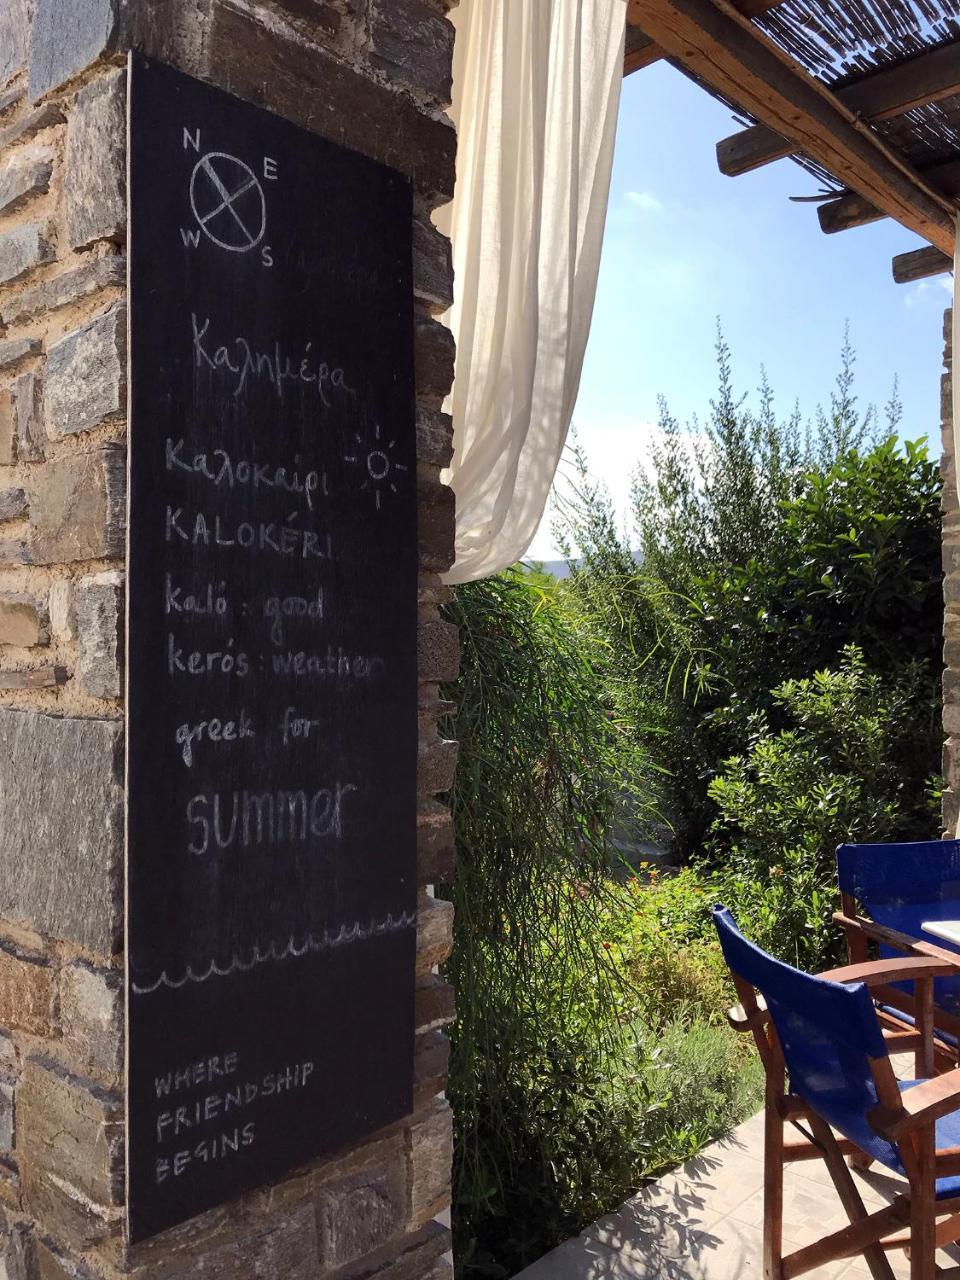 N
E
W
S
Καλημέρα
Καλοκαίρι
KALOKÉRI
kaló : good
kerós : weather
greek for
summer
WHERE
FRIENDSHIP
BEGINS